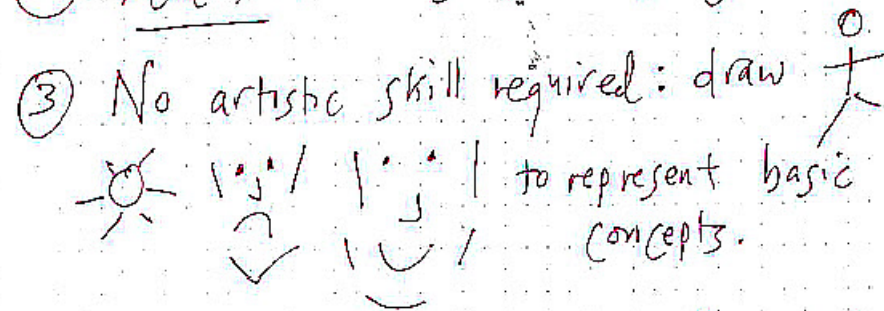 ③ No artistic skill required: draw
to represent basic
concepts.